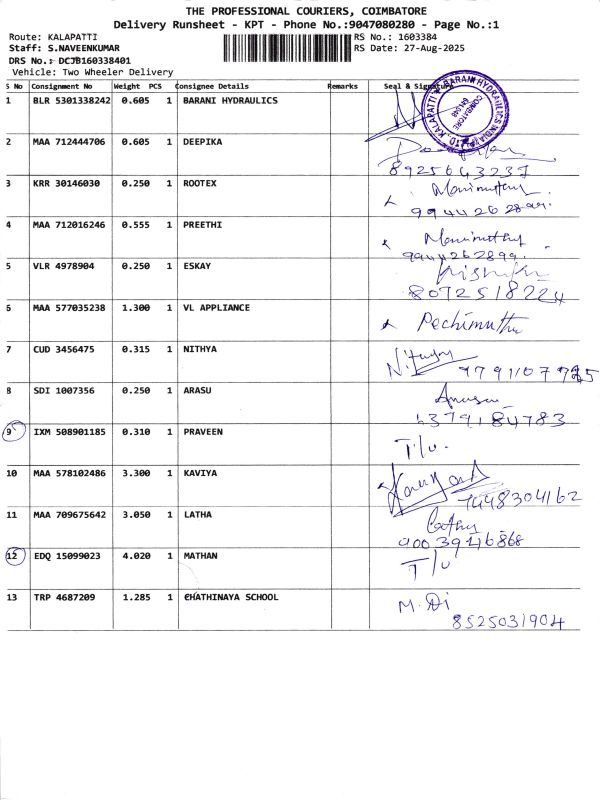 THE PROFESSIONAL COURIERS, COIMBATORE
Delivery Runsheet - KPT - Phone No.:9047080280 - Page No.:1
Route: KALAPATTI RS No.: 1603384
Staff: S.NAVEENKUMAR RS Date: 27-Aug-2025
DRS No.: DCJB160338401
Vehicle: Two Wheeler Delivery
S No Consignment No Weight PCS Consignee Details Remarks Seal & Signature
1 BLR 5301338242 0.605 1 BARANI HYDRAULICS
BARANI HYDRAULICS INDIA (P) LTD. KALAPATTI
COIMBATORE
641 048
2 MAA 712444706 0.605 1 DEEPIKA
8925643237
3 KRR 30146030 0.250 1 ROOTEX Manimuthu
9944262899
4 MAA 712016246 0.555 1 PREETHI Manimuthu
9944262899
5 VLR 4978904 0.250 1 ESKAY
8072518224
6 MAA 577035238 1.300 1 VL APPLIANCE Pechimuthu
7 CUD 3456475 0.315 1 NITHYA
8 SDI 1007356 0.250 1 ARASU
6379184783
9 IXM 508901185 0.310 1 PRAVEEN T/U.
10 MAA 578102486 3.300 1 KAVIYA
9448304162
11 MAA 709675642 3.050 1 LATHA
9003946868
12 EDQ 15099023 4.020 1 MATHAN T/U
13 TRP 4687209 1.285 1 CHATHINAYA SCHOOL
8525031904